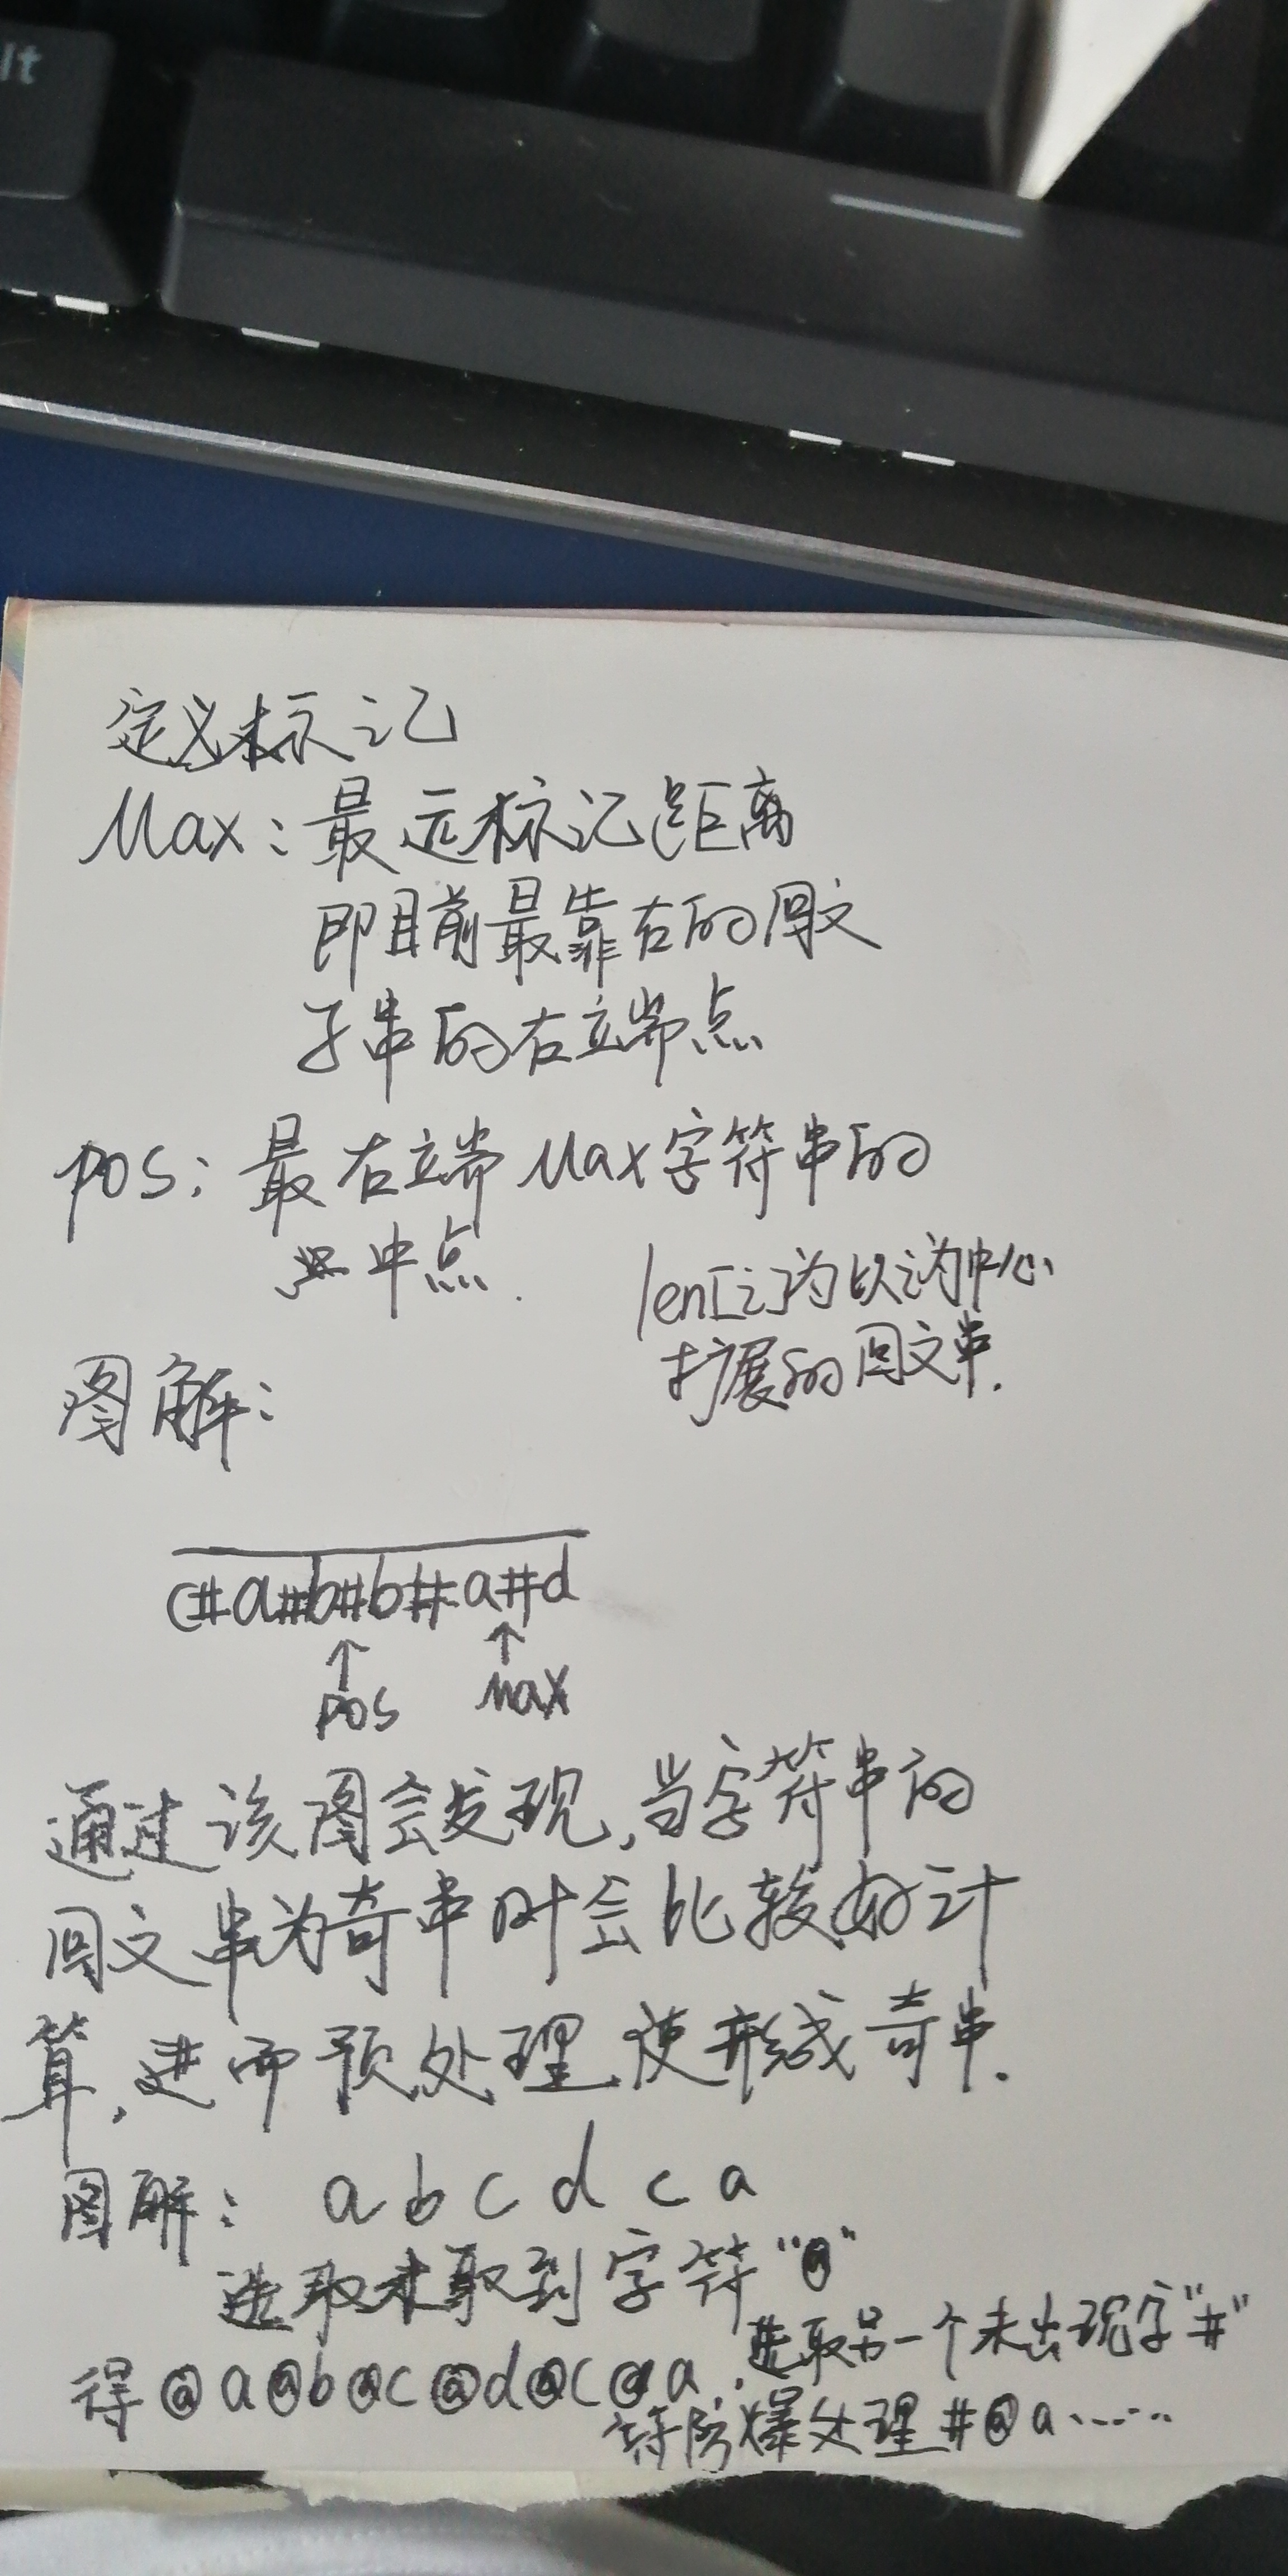 lt
定义标记
Max：最远标记距离
即目前最靠右的回文
子串的右端点
pos：最右端Max字符串的
中点．
len[i]为以i为中心
扩展的回文串．
图解：
c#a#b#b#a#d
↑ ↑
pos max
通过该图会发现，当字符串的
回文串为奇串时会比较好计
算，进而预处理使形成奇串．
图解： a b c d c a
选取未取到字符“@”
得@a@b@c@d@c@a．选取另一个未出现字“#”
防爆处理#@a······